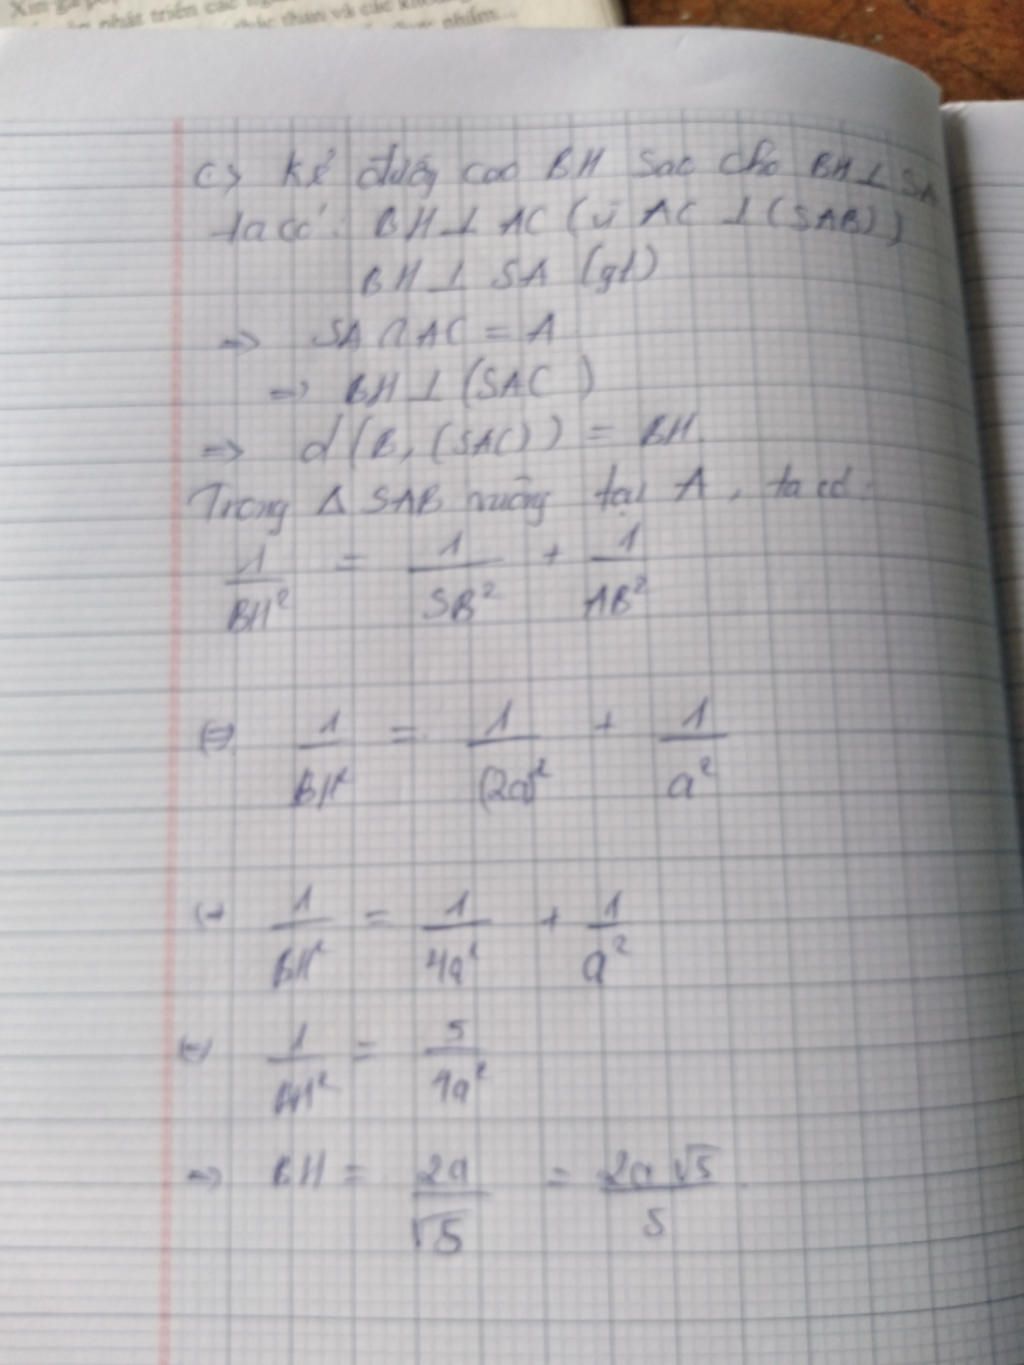 Xin
phát triển các
thác than và các
phẩm...
c> Kẻ đường cao BH sao cho BH ⊥ SA
ta có : BH ⊥ AC (vì AC ⊥ (SAB))
BH ⊥ SA (gt)
=> SA ∩ AC = A
=> BH ⊥ (SAC)
=> d(B, (SAC)) = BH.
Trong Δ SAB vuông tại A, ta có:
1/BH² = 1/SB² + 1/AB²
(=) 1/BH² = 1/(2a)² + 1/a²
(=) 1/BH² = 1/4a² + 1/a²
(=) 1/BH² = 5/4a²
=> BH = 2a/√5 = 2a√5/5.